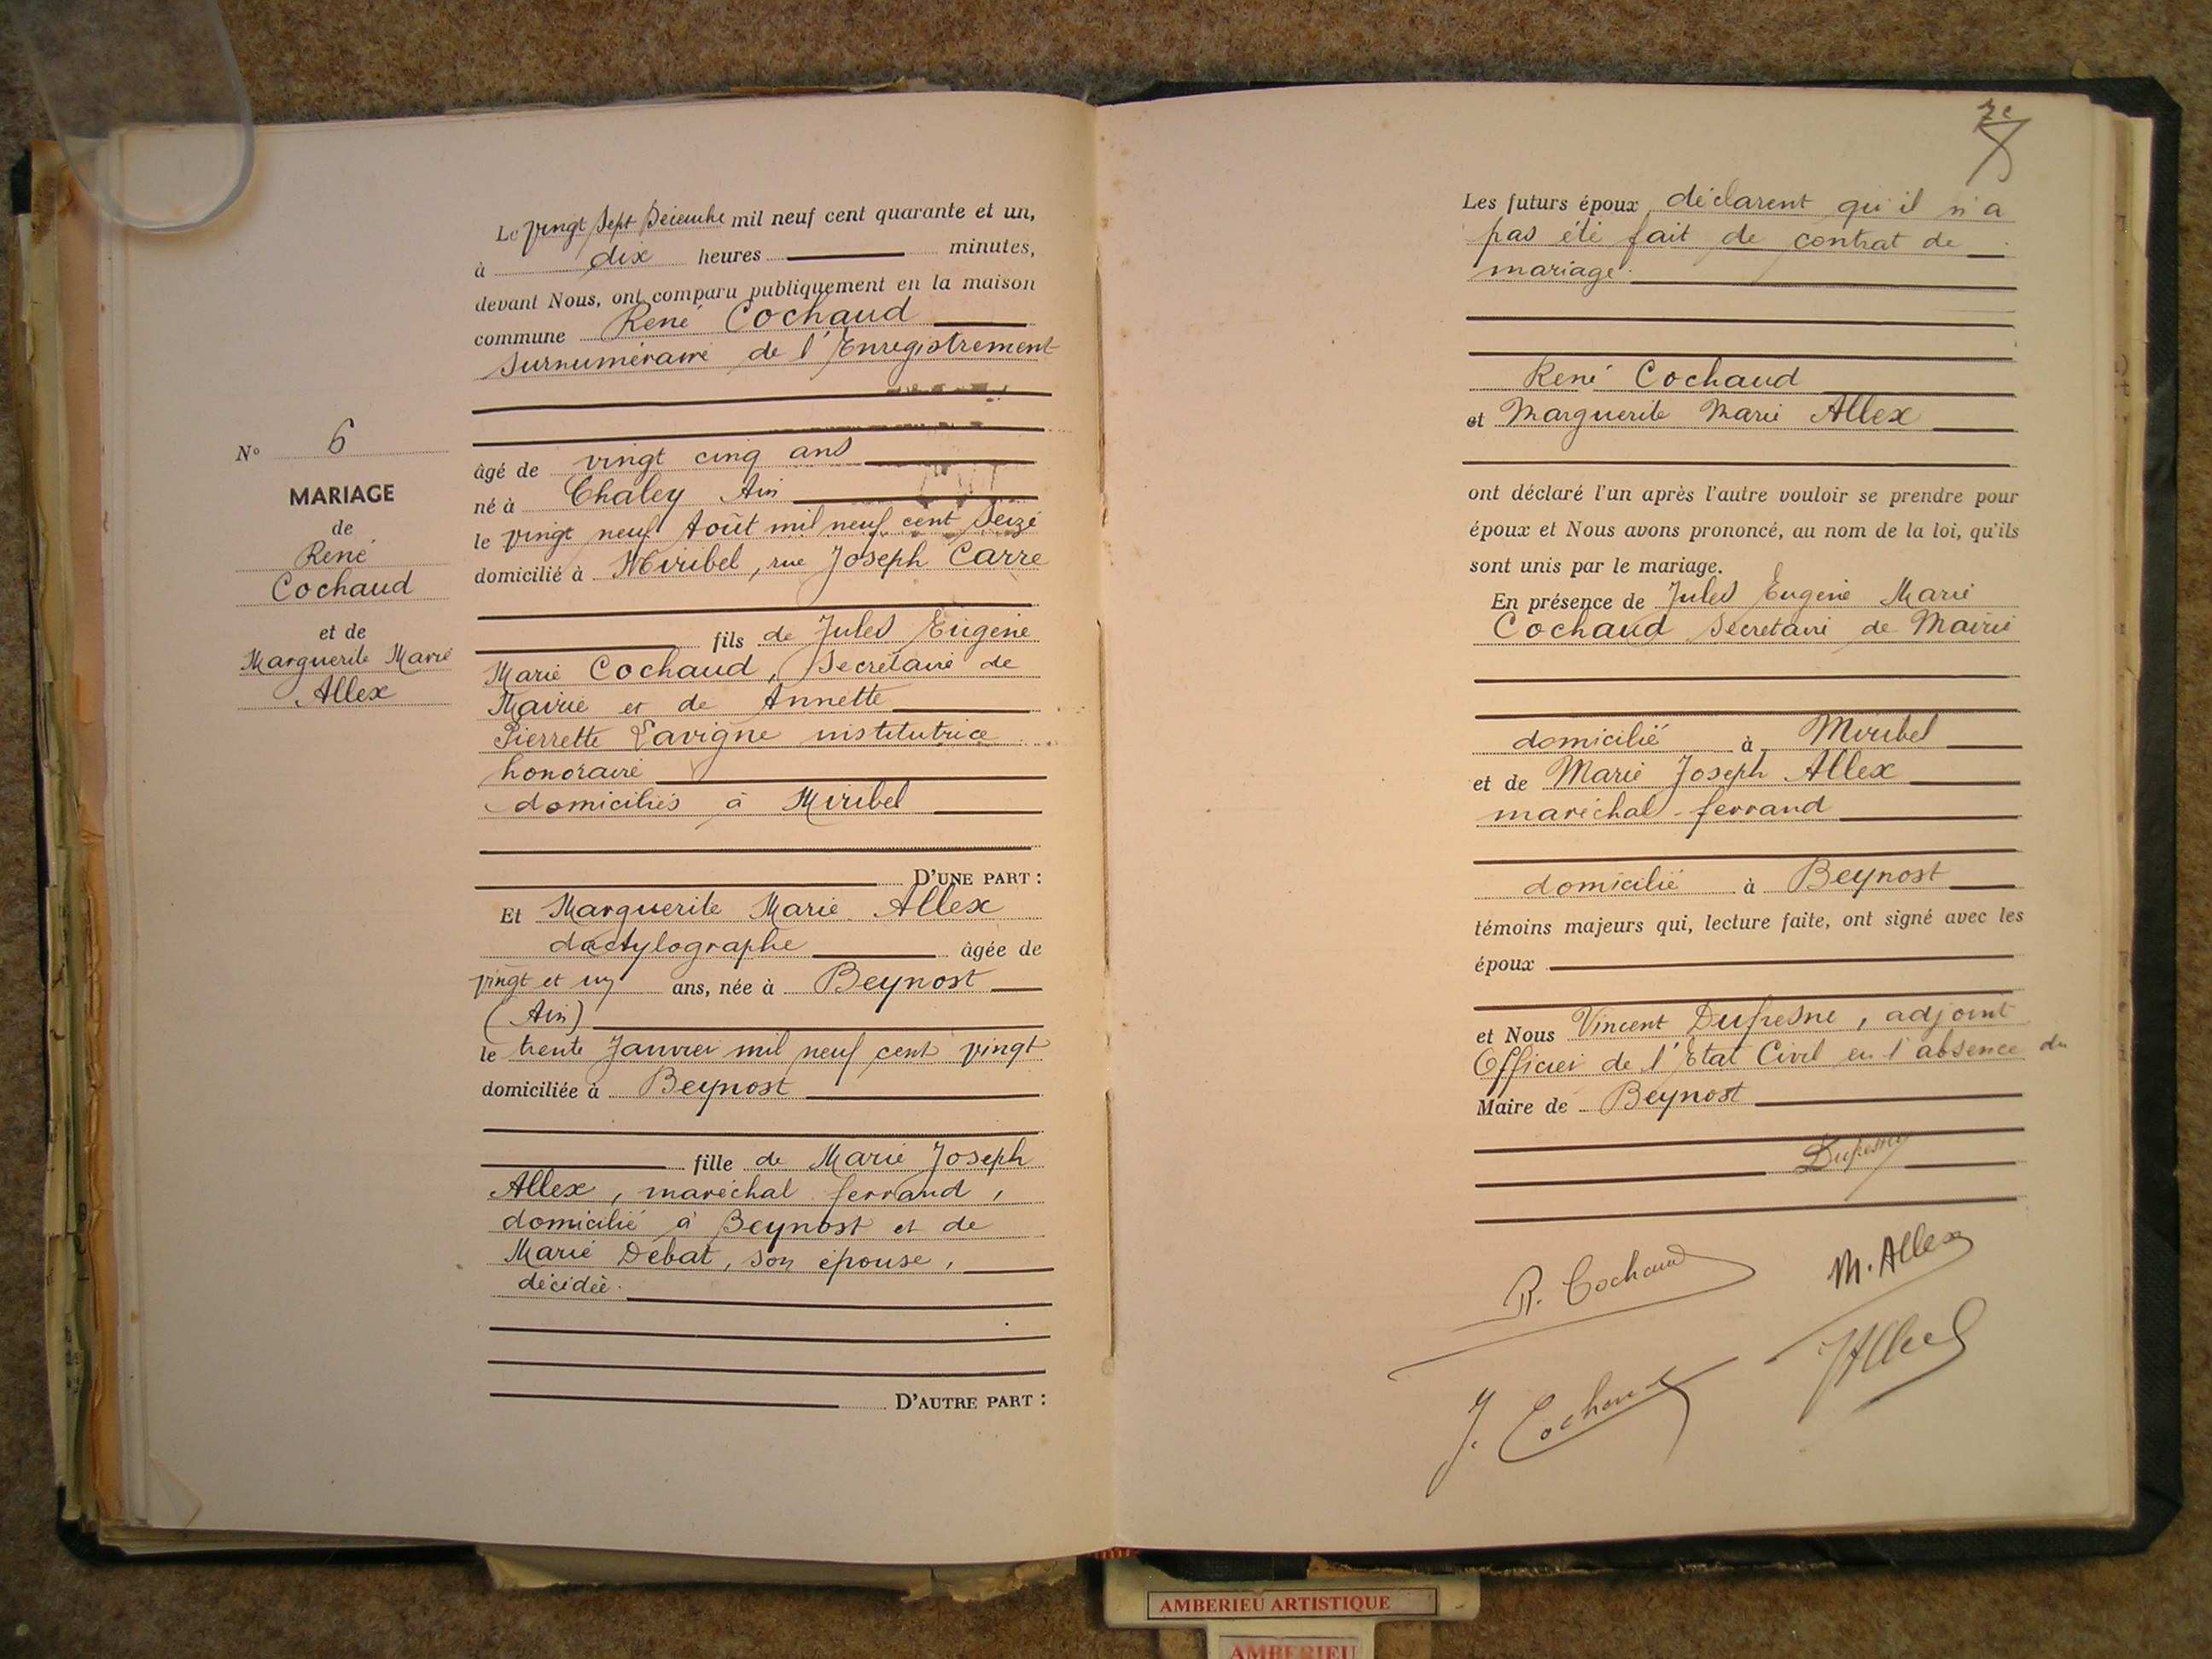 N° 6
MARIAGE
de
René
Cochaud
et de
Marguerite Marie
Allex
Le vingt sept Décembre mil neuf cent quarante et un,
à dix heures minutes,
devant Nous, ont comparu publiquement en la maison
commune René Cochaud
Surnuméraire de l'Enregistrement
âgé de vingt cinq ans
né à Chaley Ain
le vingt neuf Août mil neuf cent seize
domicilié à Miribel, rue Joseph Carre
fils de Jules Eugène
Marie Cochaud, Secrétaire de
Mairie et de Annette
Pierrette Lavigne institutrice
honoraire
domiciliés à Miribel
D'UNE PART :
Et Marguerite Marie Allex
dactylographe âgée de
vingt et un ans, née à Beynost
(Ain)
le trente Janvier mil neuf cent vingt
domiciliée à Beynost
fille de Marie Joseph
Allex, maréchal ferrand,
domicilié à Beynost et de
Marie Débat, son épouse,
décédée.
D'AUTRE PART :
Les futurs époux déclarent qu'il n'a
pas été fait de contrat de
mariage.
René Cochaud
et Marguerite Marie Allex
ont déclaré l'un après l'autre vouloir se prendre pour
époux et Nous avons prononcé, au nom de la loi, qu'ils
sont unis par le mariage.
En présence de Jules Eugène Marie
Cochaud Secrétaire de Mairie
domicilié à Miribel
et de Marie Joseph Allex
maréchal-ferrand
domicilié à Beynost
témoins majeurs qui, lecture faite, ont signé avec les
époux
et Nous Vincent Dufresne, adjoint
Officier de l'Etat Civil en l'absence du
Maire de Beynost
Dufresne
R. Cochaud
M. Allex
J. Cochaud
J Allex
AMBERIEU ARTISTIQUE
AMBERIEU